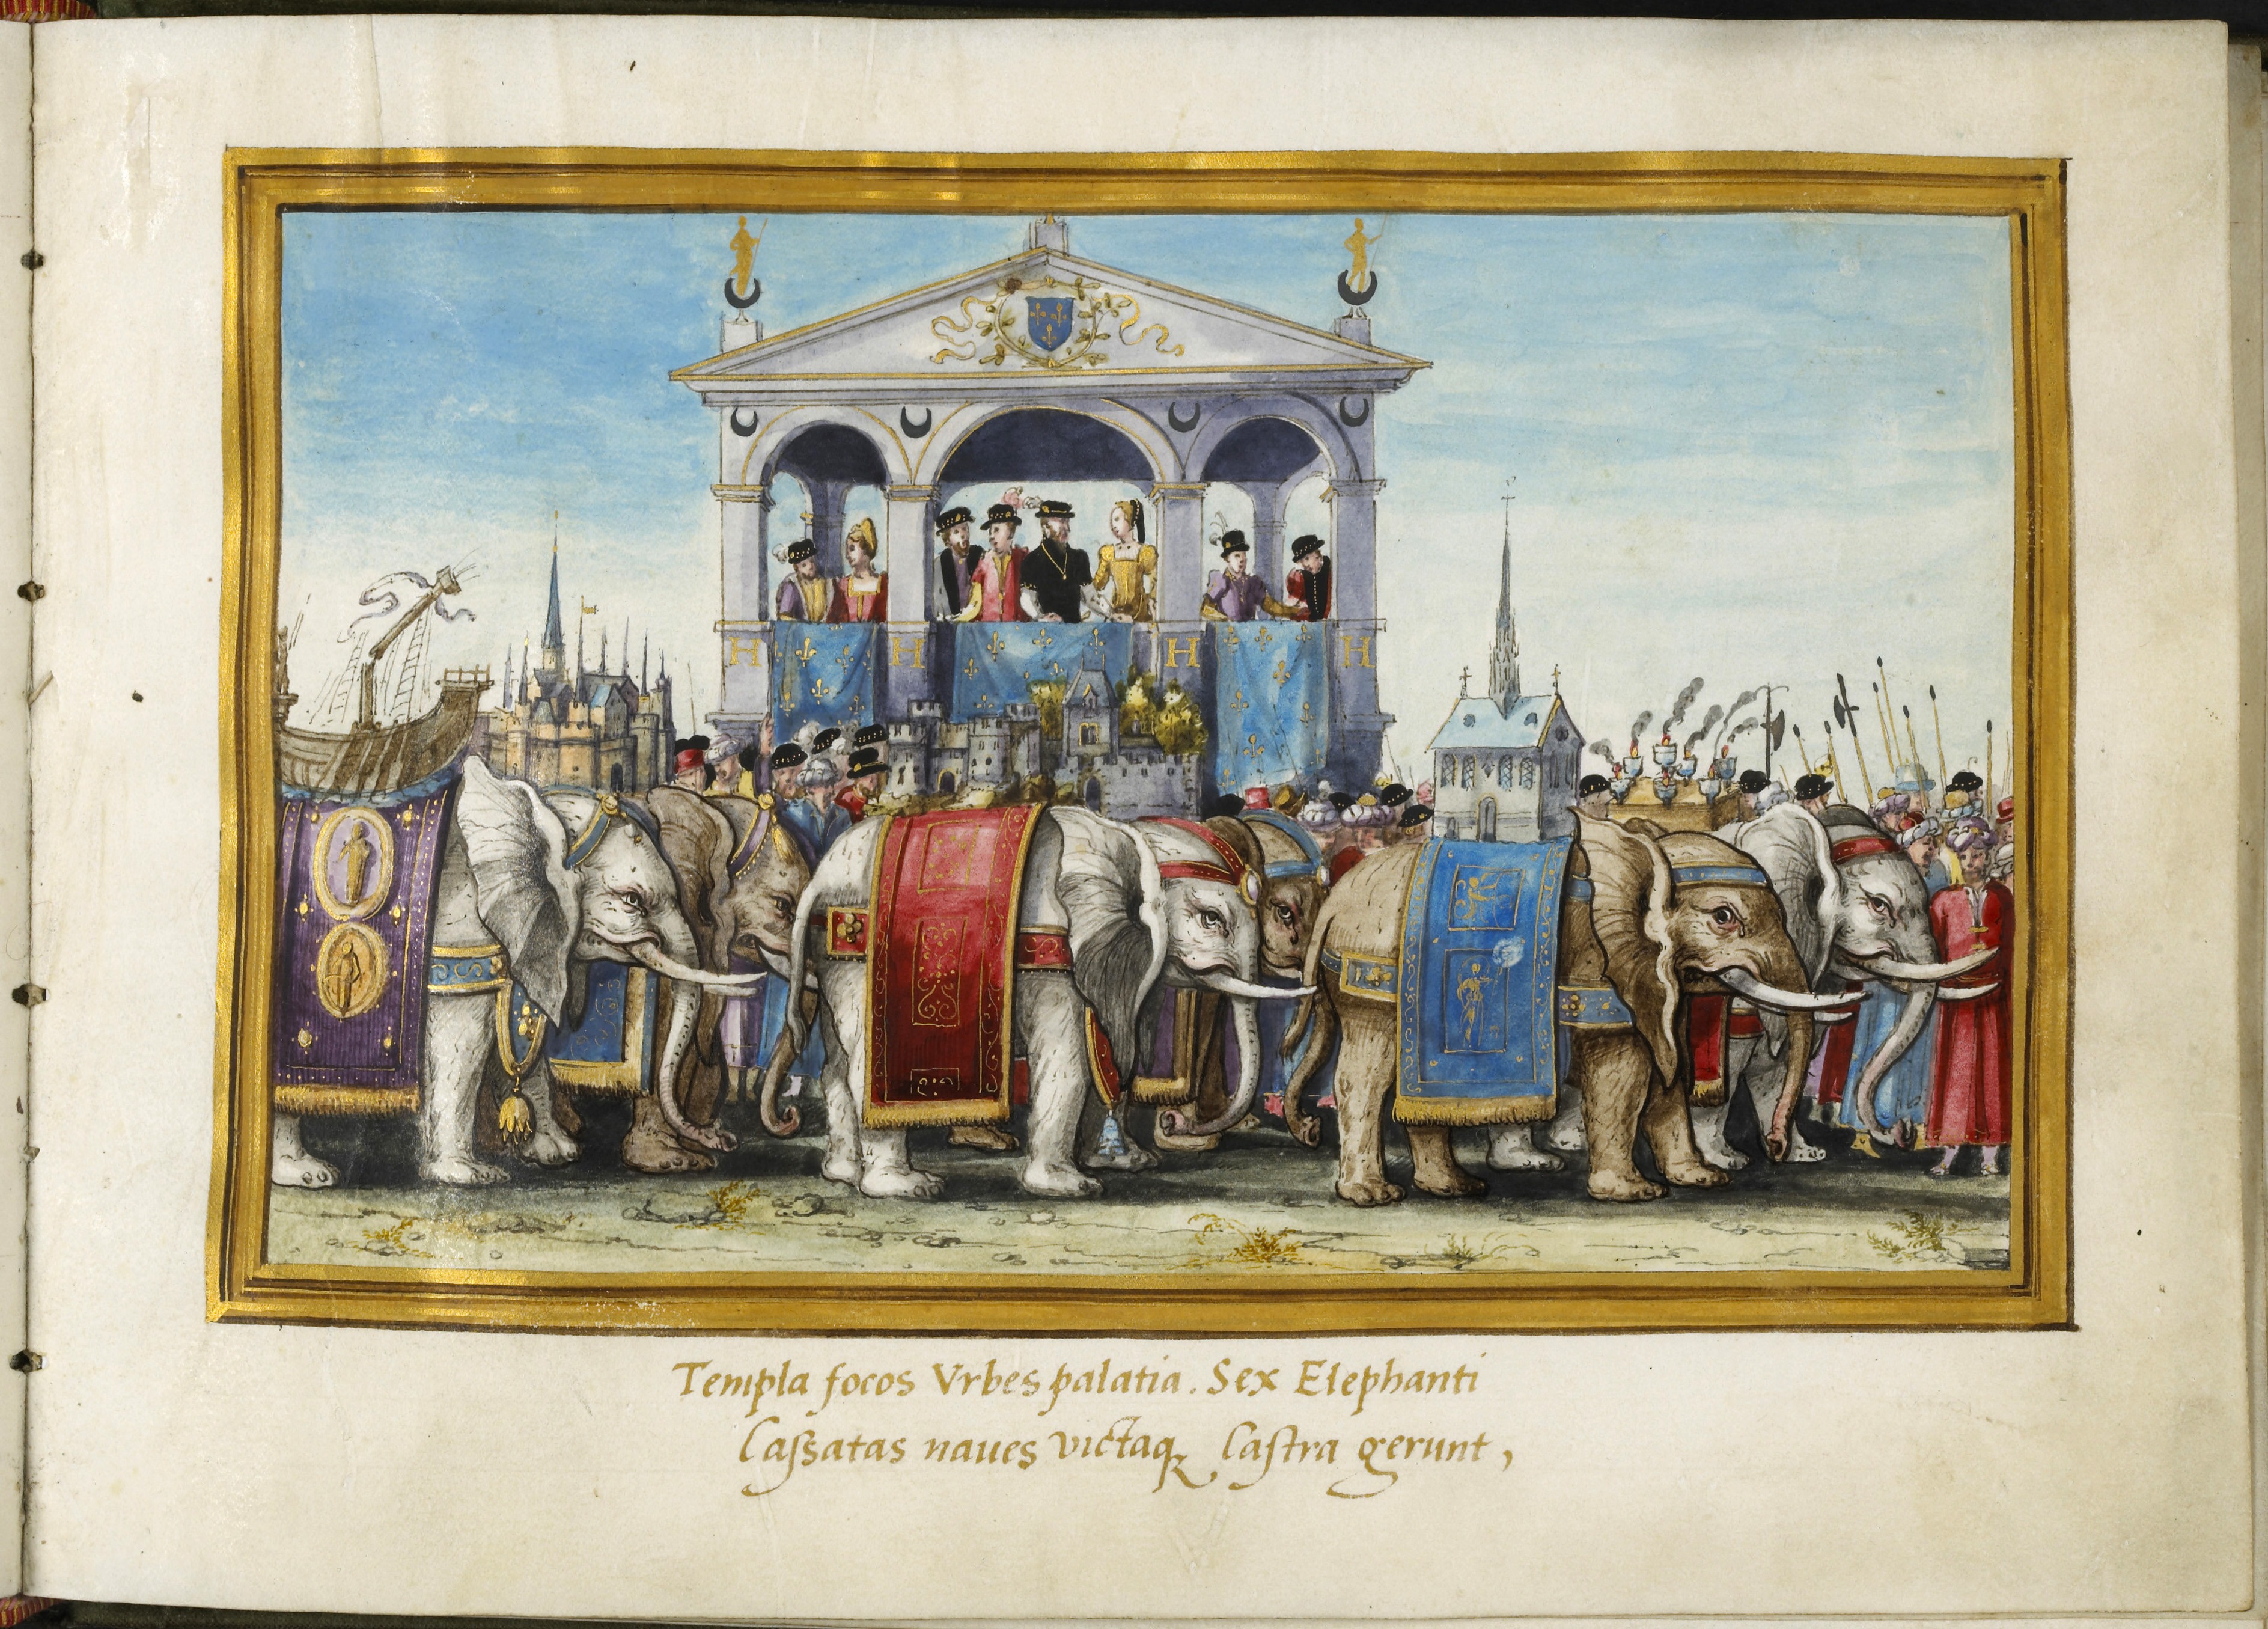 H H H H
Templa focos Vrbes palatia. Sex Elephanti
Caſsatas naues victaqꝫ Caſtra gerunt,